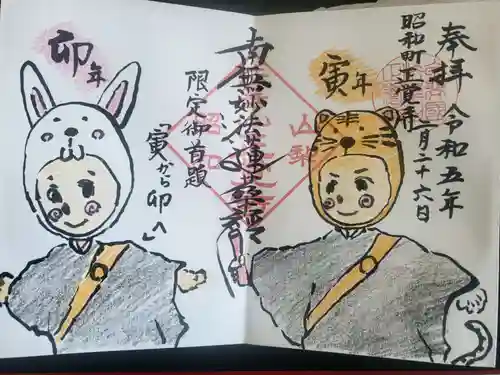 奉拝
令和五年
一月二十六日
昭和町正覚寺
寅年
南無妙法蓮華経
限定御首題
「寅から卯へ」
卯年
山梨
昭和